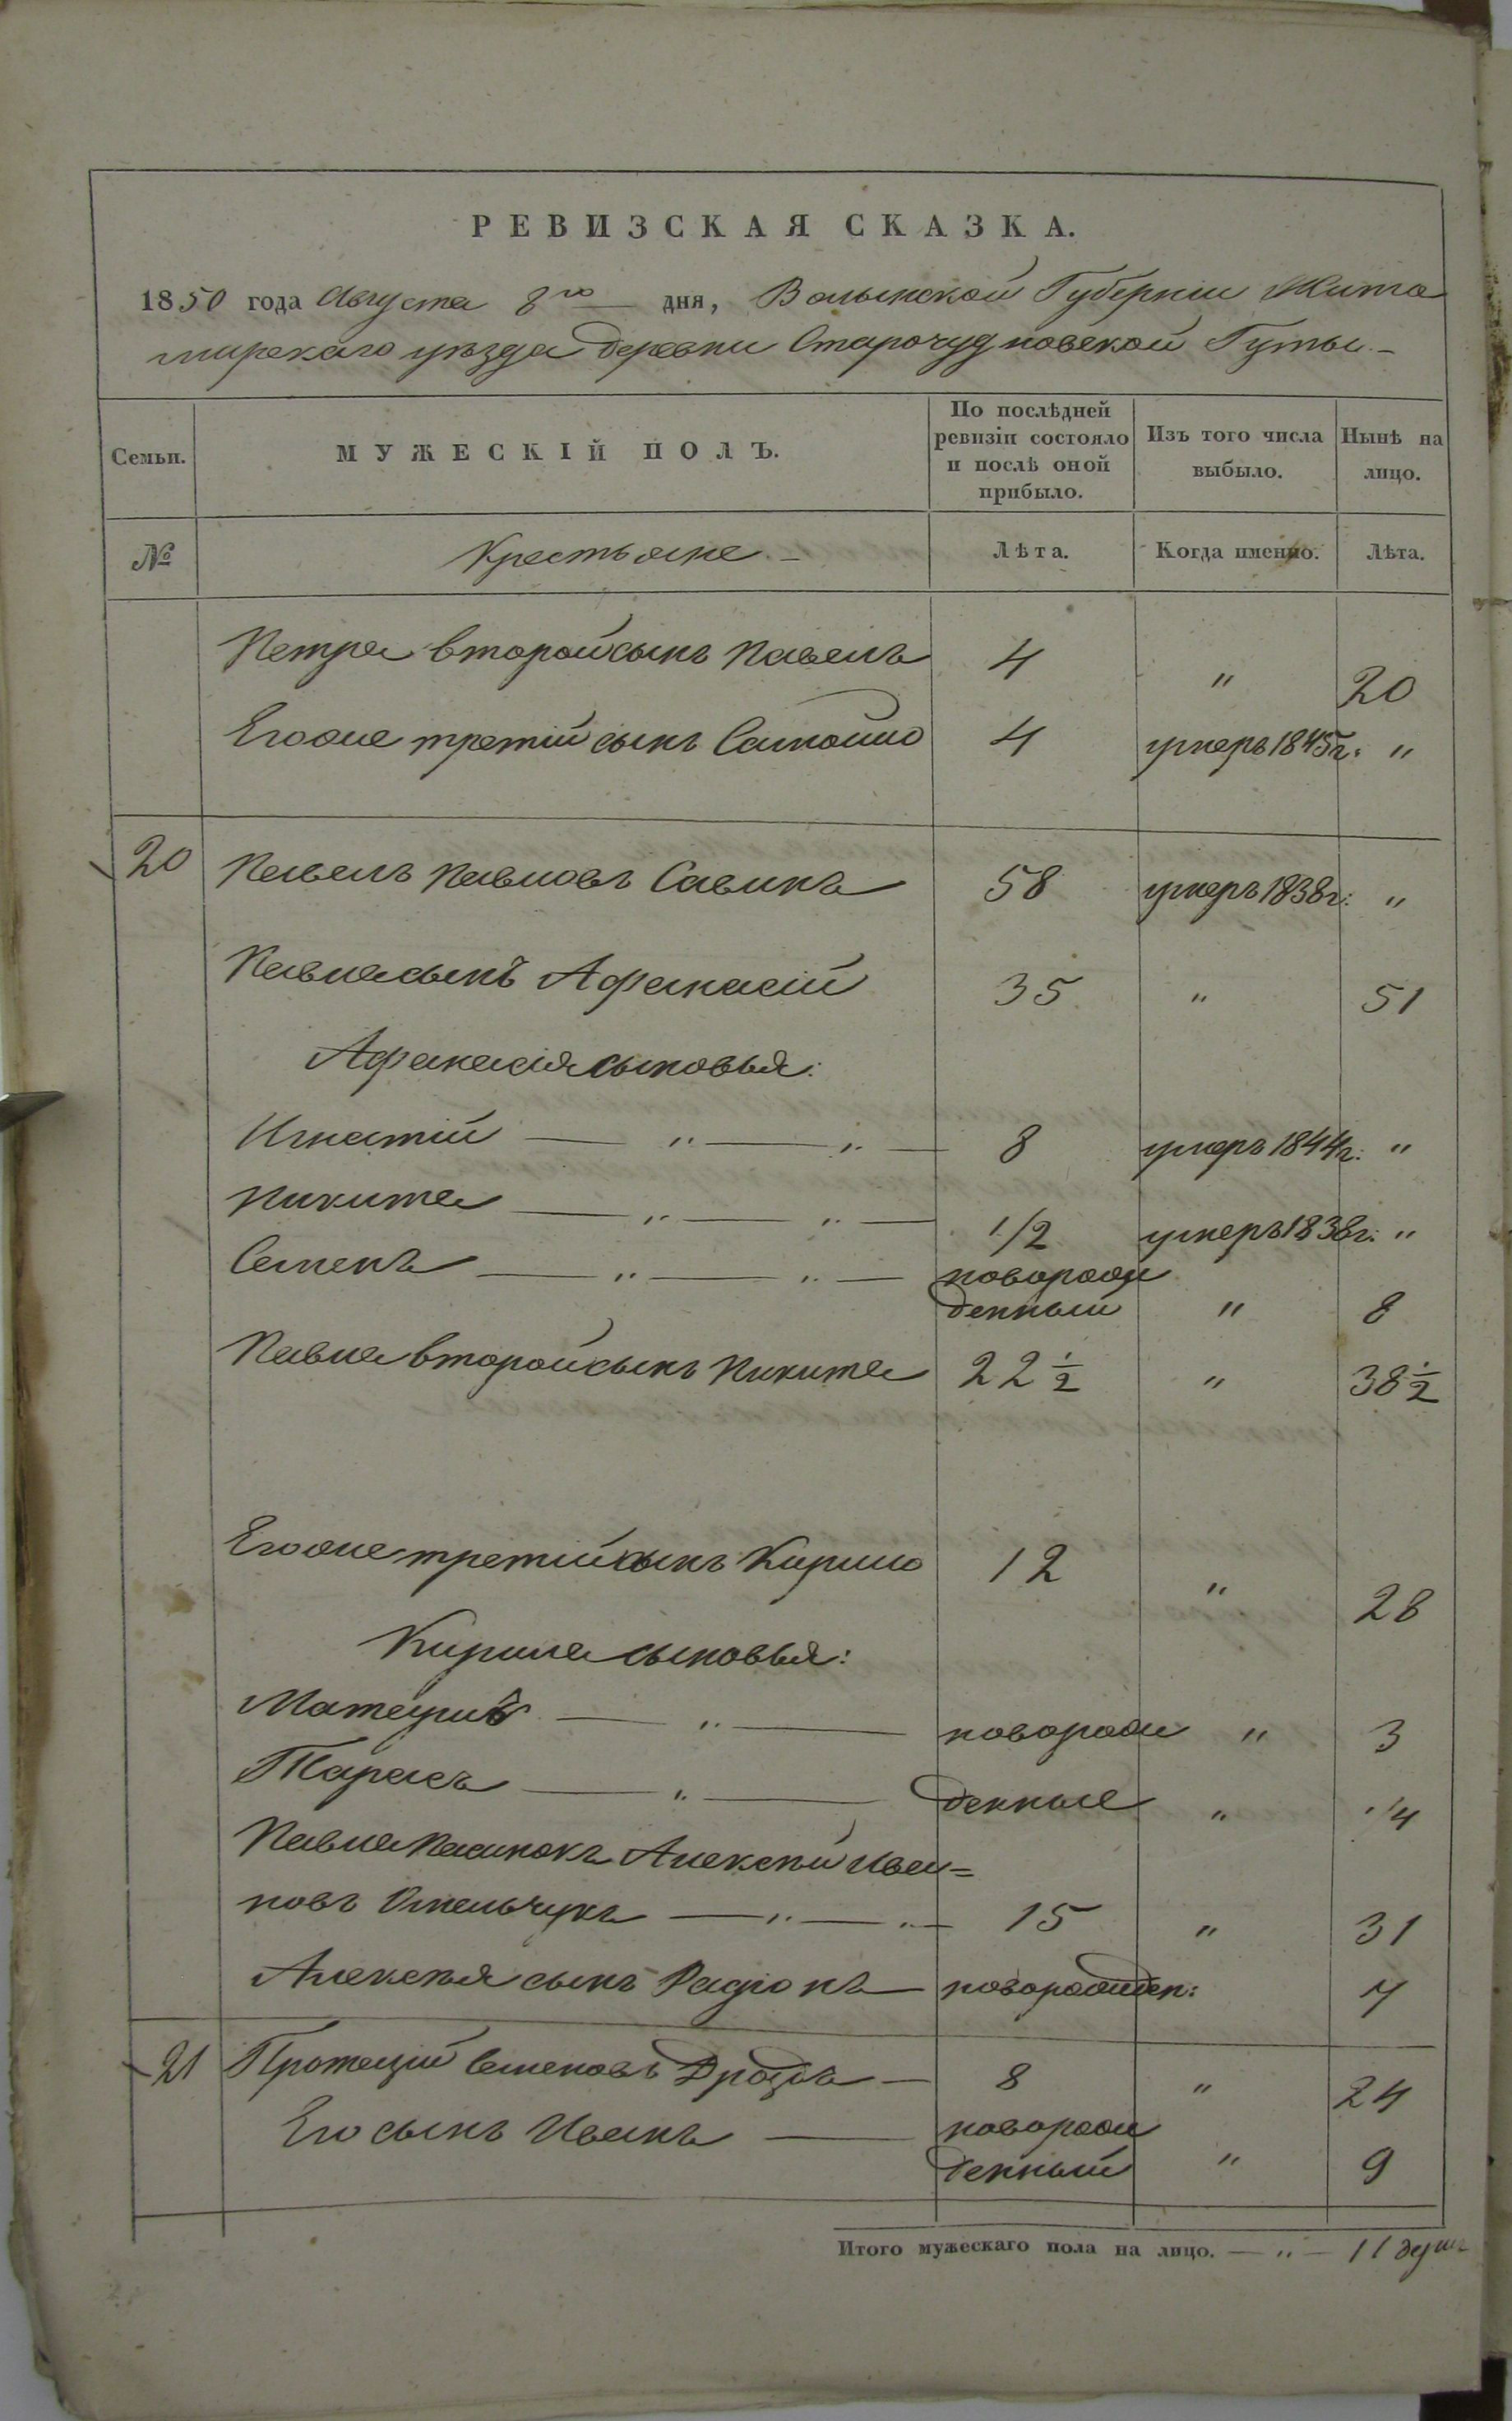 РЕВИЗСКАЯ СКАЗКА.
1850 года Августа 8го дня, Волынской Губерніи Жито
мирскаго уѣзда деревни Старочудновской Гуты.
Семьи. МУЖЕСКІЙ ПОЛЪ. По послѣдней ревизіи состояло и послѣ оной прибыло. Изъ того числа выбыло. Нынѣ на лицо.
№ Крестьяне Лѣта. Когда именно. Лѣта.
Петра второй сынъ Павелъ 4 " 20
Егоже третій сынъ Самойло 4 умеръ 1845г. "
20 Павелъ Павловъ Савинъ 58 умеръ 1838г: "
Павла сынъ Афанасій 35 " 51
Афанасія сыновья:
Игнатій — " — " — 8 умеръ 1844г: "
Никита — " — " — 1/2 умеръ 1838г: "
Семенъ — " — " — новорож
денный " 8
Павла второй сынъ Никита 22 1/2 " 38 1/2
Егоже третій сынъ Кирило 12 " 28
Кирила сыновья:
Матвій — " — новорож " 3
Тарасъ — " — денные " 1/4
Павла Пасинокъ Алексѣй Ива=
новъ Омельчукъ — " — " — 15 " 31
Алексѣя сынъ Радіонъ — новорожден: 7
21 Протасій Семеновъ Дроздъ — 8 " 24
Его сынъ Иванъ — новорож
денный " 9
Итого мужескаго пола на лицо. — " — 11 душъ